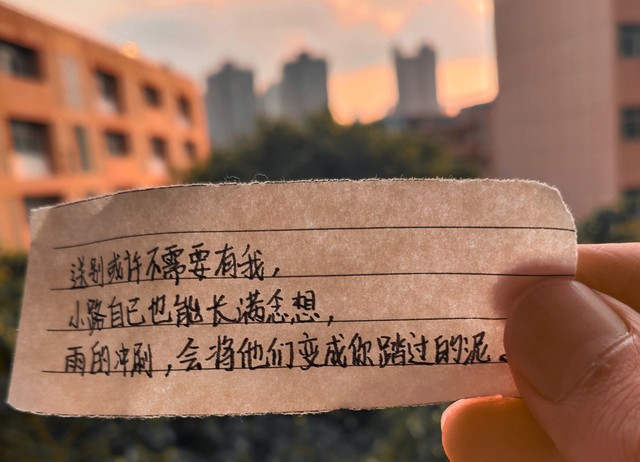 送别或许不需要有我,
小路自己也能长满念想,
雨的冲刷,会将他们变成你踏过的泥。